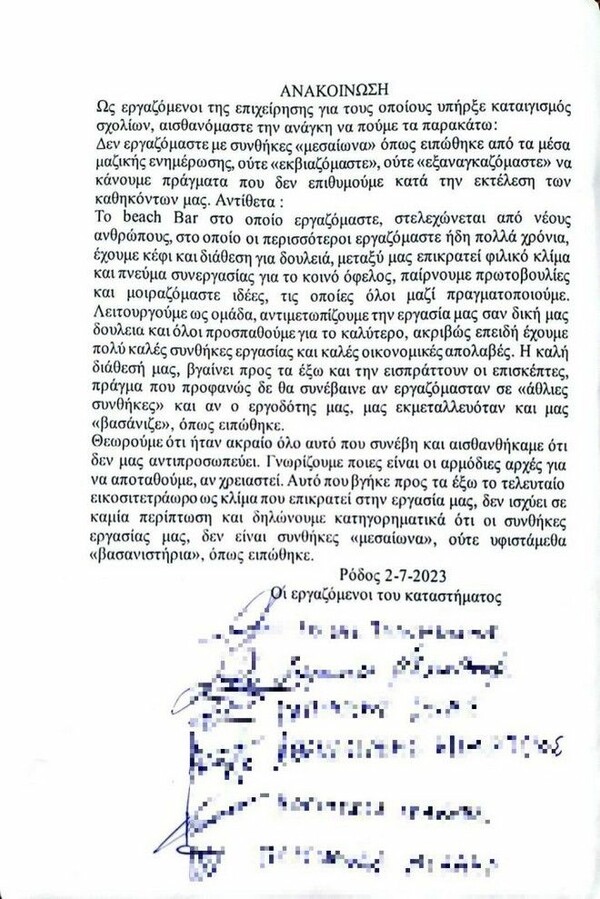 ΑΝΑΚΟΙΝΩΣΗ
Ως εργαζόμενοι της επιχείρησης για τους οποίους υπήρξε καταιγισμός
σχολίων, αισθανόμαστε την ανάγκη να πούμε τα παρακάτω:
Δεν εργαζόμαστε με συνθήκες «μεσαίωνα» όπως ειπώθηκε από τα μέσα
μαζικής ενημέρωσης, ούτε «εκβιαζόμαστε», ούτε «εξαναγκαζόμαστε» να
κάνουμε πράγματα που δεν επιθυμούμε κατά την εκτέλεση των
καθηκόντων μας. Αντίθετα :
Το beach Bar στο οποίο εργαζόμαστε, στελεχώνεται από νέους
ανθρώπους, στο οποίο οι περισσότεροι εργαζόμαστε ήδη πολλά χρόνια,
έχουμε κέφι και διάθεση για δουλειά, μεταξύ μας επικρατεί φιλικό κλίμα
και πνεύμα συνεργασίας για το κοινό όφελος, παίρνουμε πρωτοβουλίες
και μοιραζόμαστε ιδέες, τις οποίες όλοι μαζί πραγματοποιούμε.
Λειτουργούμε ως ομάδα, αντιμετωπίζουμε την εργασία μας σαν δική μας
δουλεια και όλοι προσπαθούμε για το καλύτερο, ακριβώς επειδή έχουμε
πολύ καλές συνθήκες εργασίας και καλές οικονομικές απολαβές. Η καλή
διάθεσή μας, βγαίνει προς τα έξω και την εισπράττουν οι επισκέπτες,
πράγμα που προφανώς δε θα συνέβαινε αν εργαζόμασταν σε «άθλιες
συνθήκες» και αν ο εργοδότης μας, μας εκμεταλλευόταν και μας
«βασάνιζε», όπως ειπώθηκε.
Θεωρούμε ότι ήταν ακραίο όλο αυτό που συνέβη και αισθανθήκαμε ότι
δεν μας αντιπροσωπεύει. Γνωρίζουμε ποιες είναι οι αρμόδιες αρχές για
να αποταθούμε, αν χρειαστεί. Αυτό που βγήκε προς τα έξω το τελευταίο
εικοσιτετράωρο ως κλίμα που επικρατεί στην εργασία μας, δεν ισχύει σε
καμία περίπτωση και δηλώνουμε κατηγορηματικά ότι οι συνθήκες
εργασίας μας, δεν είναι συνθήκες «μεσαίωνα», ούτε υφιστάμεθα
«βασανιστήρια», όπως ειπώθηκε.
Ρόδος 2-7-2023
Οι εργαζόμενοι του καταστήματος